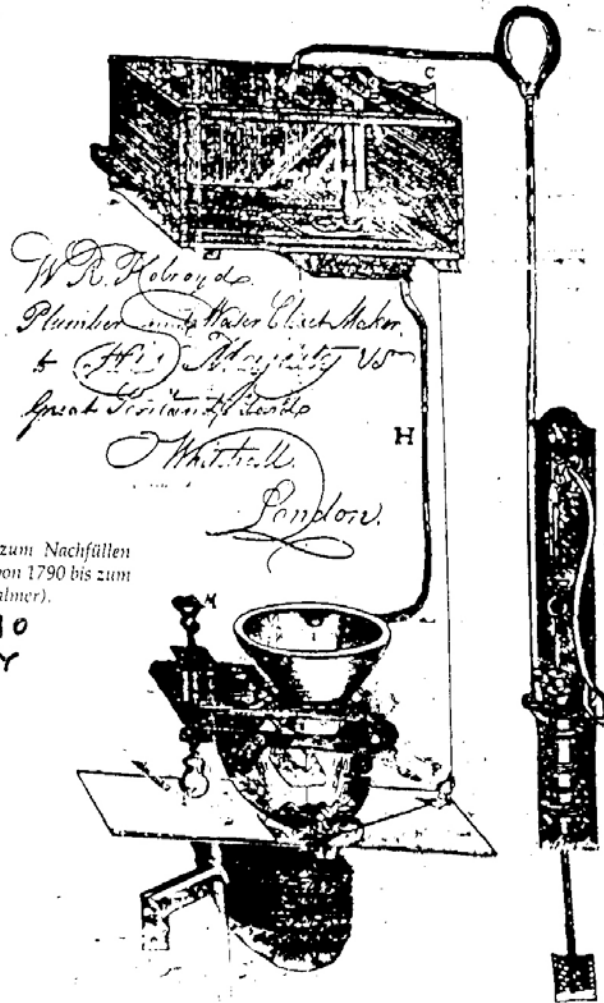 C
W. R. Holroyd
Plumber and Water Closet Maker,
to His Majesty
Great Scotland Yard
Whitehall.
London.
H
zum Nachfüllen
von 1790 bis zum
almer).
M